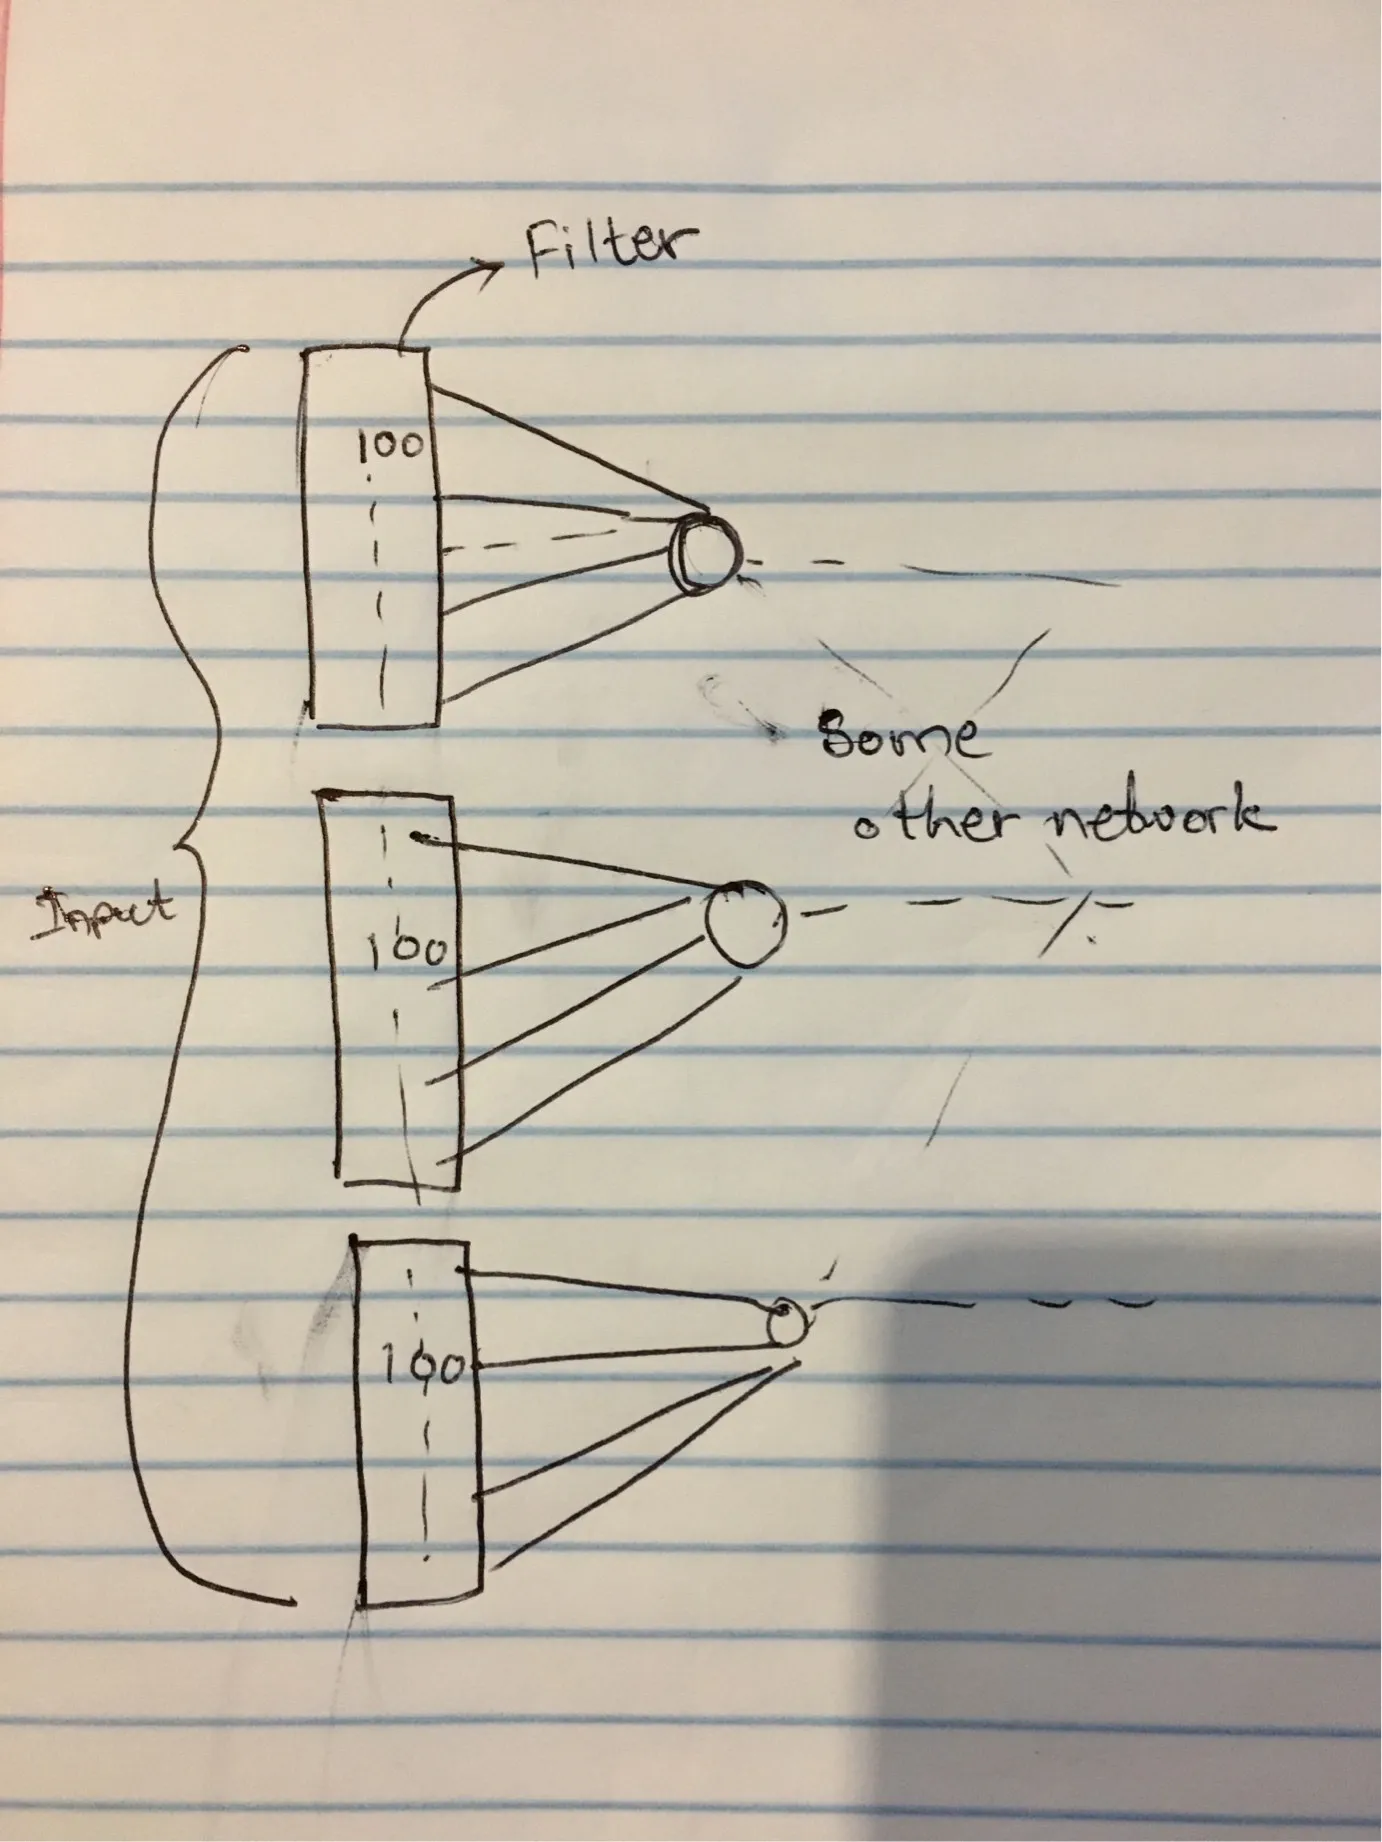 Filter
100
Some
other network
Input
100
100